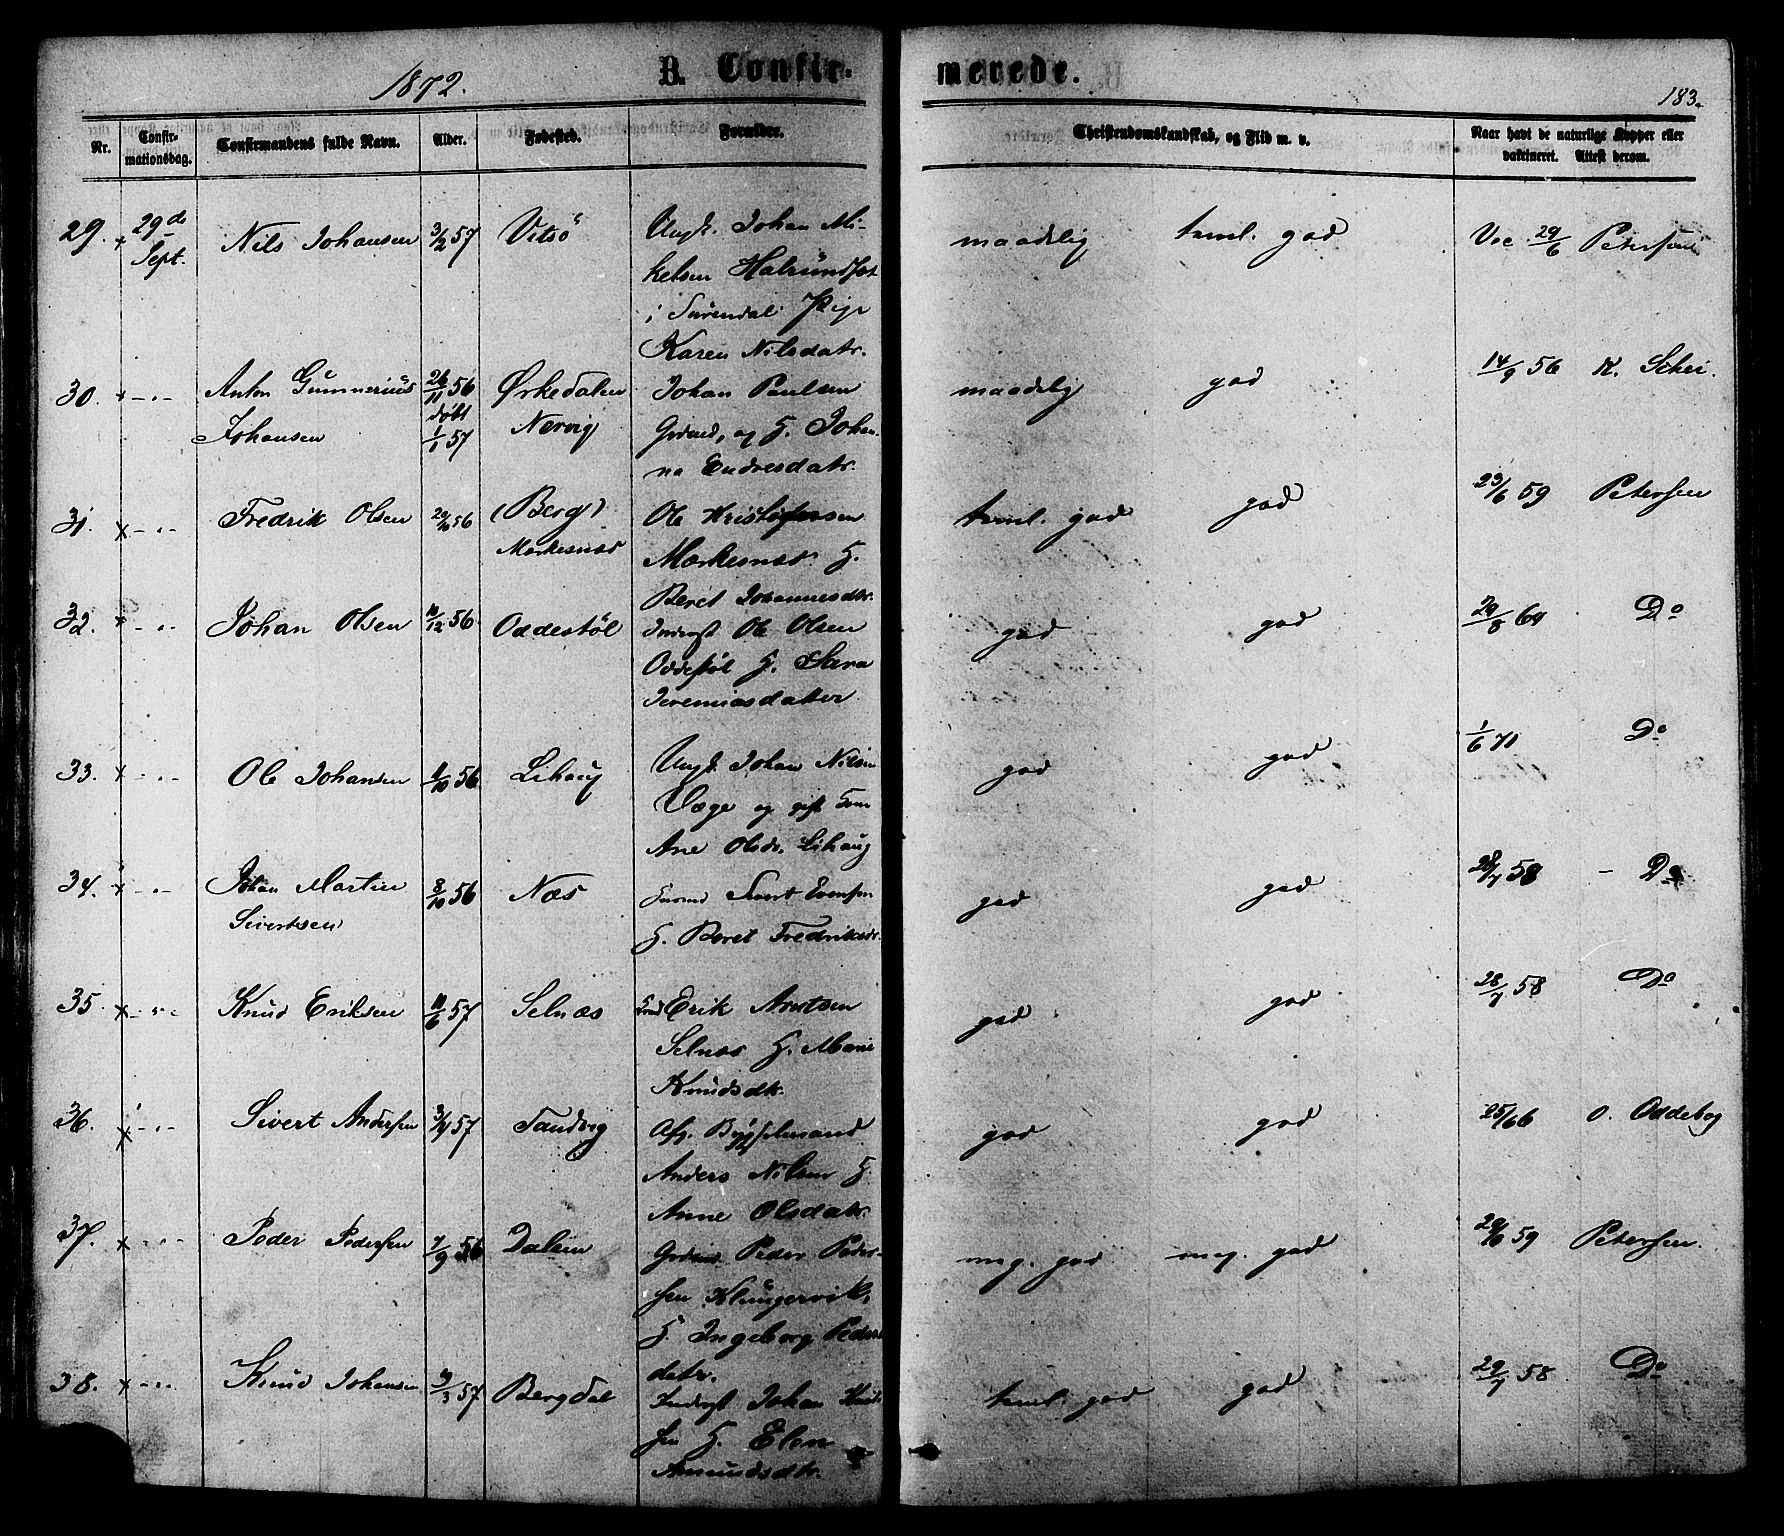 1872.
B. Confirmerede.
183.
Nr.
Confirmationsdag.
Confirmandens fulde Navn.
Alder.
Fødested.
Forældre.
Christendomskundskab, og Flid m. v.
Naar havt de naturlige Kopper eller vakcineret. Attest derom.
29. x 29de Sept. Nils Johansen 3/2 57 Vitsö
Ungk. Johan Mi-
kelsen Halsundset
i Surendal Pige
Karen Nilsdatr.
maadelig teml. god Vac 29/6 Petersen
30. x -"- Anton Gunnerius
Johansen
26/11 56
døbt
1/1 57
Ørkedalen
Nervig
Johan Paulsen
Grdmd, og H. Johan-
na Endresdatr.
maadelig god 14/9 56 K. Schei.
31. x -"- Fredrik Olsen 56 (Berg)
Mærkesnæs
Ole Kristofersen
Mærkesnæs H.
Beret Johannesdtr.
teml. god god 23/6 59 Petersen
32. x -"- Johan Olsen 10/12 56 Oddestöl
Inderst Ole Olsen
Oddestöl H. Sara
Jeremiasdatter
god god 29/8 69 Do
33. x -"- Ole Johansen 11/10 56 Lihaug
Ungk. Johan Nilsen
Vaage og gift
Ane Olsdr. Lihaug
god god 1/6 71 Do
34. x -"- Johan Martin
Sivertsen
8/10 56 Næs
Sivert Evensen
H. Beret Fredriksdr.
god god 28/7 58 - Do
35. x -"- Knud Eriksen 11/6 57 Selnæs
Erik Arntsen
Selnæs H. Marie
Knudsdtr.
god god 28/7 58 Do
36. x -"- Sivert Andersen 57 Sandvig
Afg. Bygselmand
Anders Nilsen H.
Anne Olsdatr.
god god 25/66 O. Oddebog
37. x -"- Peder Pedersen 7/9 56 Dalen
Grdmd Peder Peder-
sen Klungervik,
H. Ingeborg Peders
datr.
meg. god meg. god 59 Petersen.
38. x -"- Knud Johansen 57 Bergdal
Inderst Johan Knud-
sen H. Elen
Amundsdtr.
teml. god god 29/7 58 Do